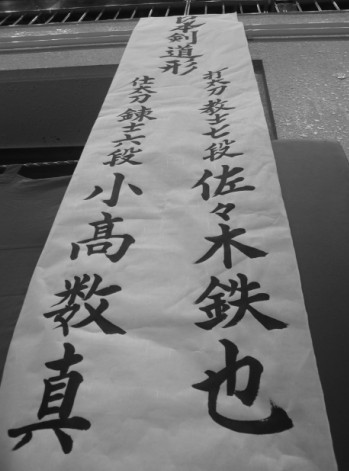 日本剣道形
打太刀 教士七段 佐々木鉄也
仕太刀 錬士六段 小髙数真